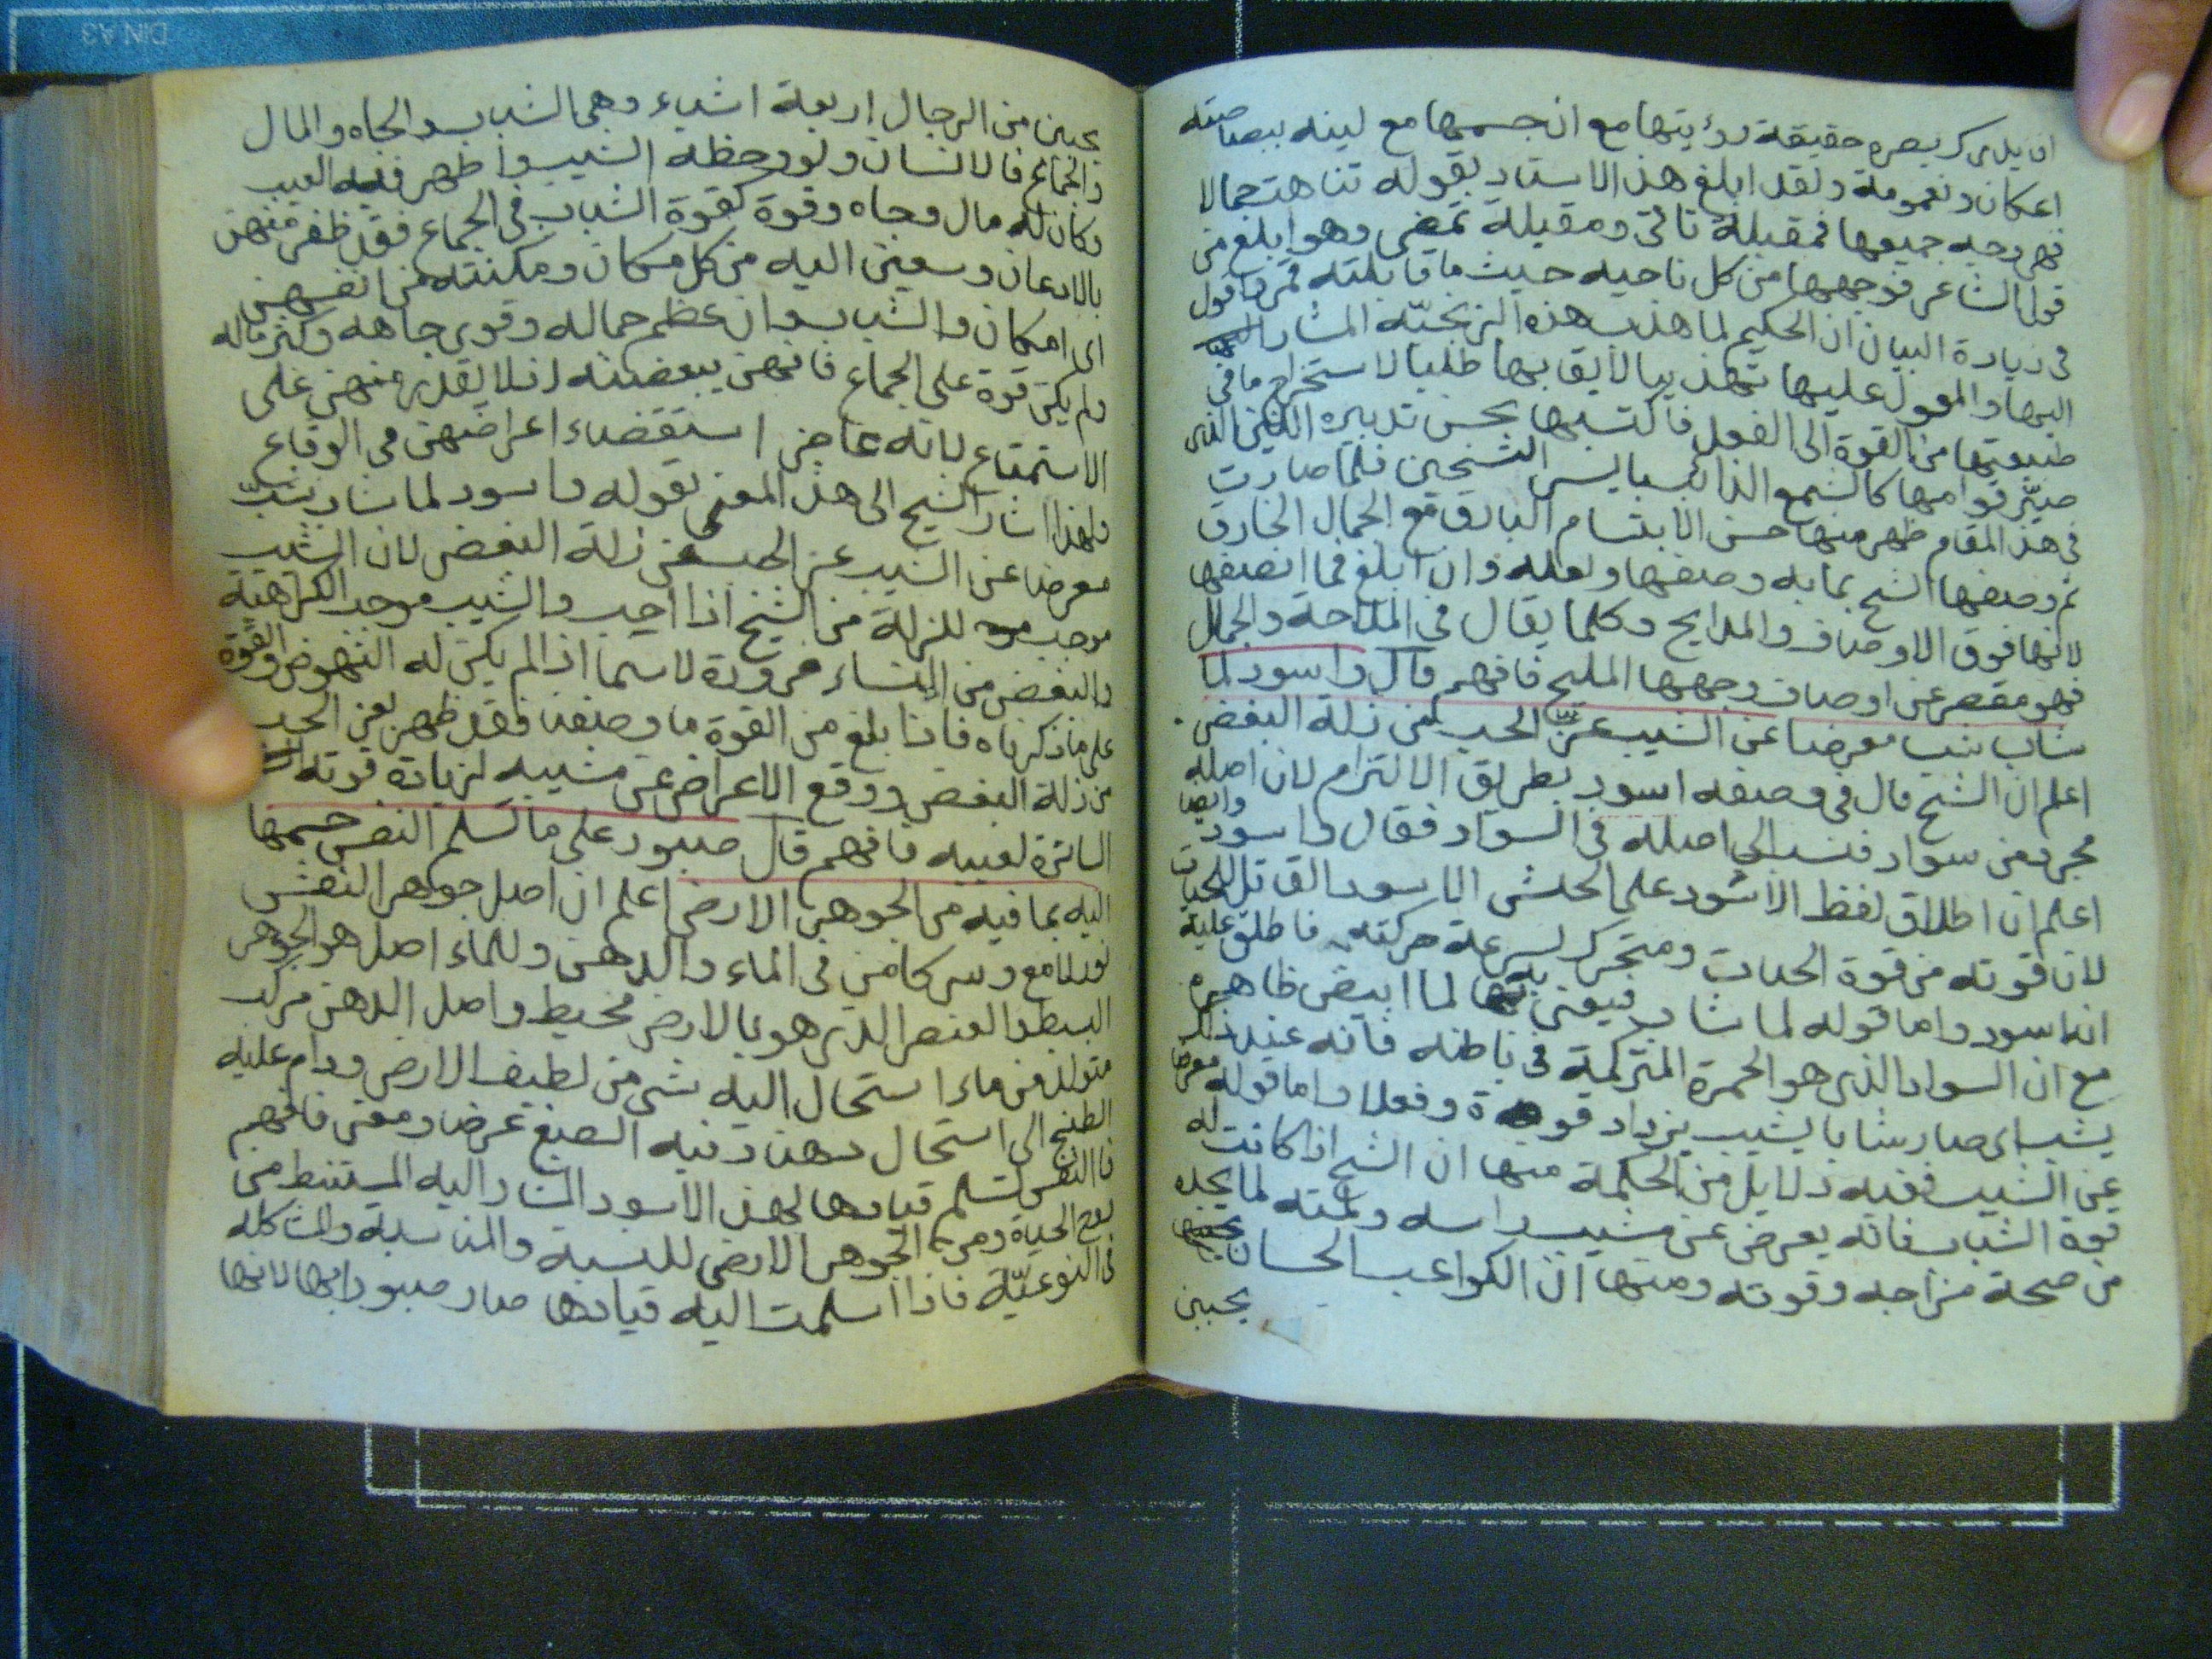 ان يدرك بصره حقيقة رؤيتها مع ان جسمها مع لينه ببصاصته
اعكان ونعومة ولقد ابلغ هذا الاستاد بقوله تناهت جمالا
فهى وجه جميعها فمقبلة تاتى ومقبلة تمضى وهو ابلغ من
قول الشاعر فوجهها من كل ناحيه حيث ما قابلته قمر واقول
فى زيادة البيان ان الحكيم لما هذب هذه الزنجيّه المشار
اليها والمعول عليها تهذيبا لايق بها طلبا لاستخراج ما فى
طبيعتها من القوة الى الفعل فاكتسبها بحسن تدبيره الذى
صيّر قوامها كالشمع الذائب بايسر التسخين فلما صارت
فى هذا المقام ظهر منها حسن الابتسام البارق مع الجمال الخارق
ثم وصفها الشيخ بما به وصفها ولعله وان ابلغ فما انصفها
لانها فوق الاوصاف والمدايح وكلما يقال فى الملاحة والجمال
فهو مقصر عن اوصاف وجهها المليح فافهم قال واسود لما
شاب شب معرضا عن الشيب عزّ الحب من ذلة البغض
اعلم ان الشيخ قال فى وصفه اسود بطريق الالتزام لان اصله
مجرد من سواد فنسب الى اصله فى السواد فقال واسود وايضا
اعلم ان اطلاق لفظ الاسود على الحنش الاسود القاتل للحيات
لان قوته من قوة الحيات ومتحرك لسرعة حركته فاطلق عليه
انه اسود واما قوله لما شاب فيعنى به لما ابيض ظاهره
مع ان السواد الذى هو الحمرة المتركمة فى باطنه فانه عند ذلك
يشب اى صار شابا يشيب يزداد قوة وفعلا واما قوله معرضا
عن الشيب ففيه دلايل من الحكمة منها ان الشيخ اذا كانت له
قوة الشباب فانه يعرض عن مشيب راسه ولمته لما يجده
من صحة مزاجه وقوته ومنها ان الكواعب الحسان
يحببن
يحببن من الرجال اربعة اشياء وهى الشباب والجاه والمال
والجماع فالانسان ولو وخطه الشيب وظهر فيه العيب
وكان له مال وجاه وقوة كقوة الشباب فى الجماع فقد ظفر منهن
بالاذعان وسعين اليه من كل مكان ومكنته من انفسهن
اى امكان والشاب وان عظم جماله وقوى جاهه وكثر ماله
ولم يكن قوة على الجماع فانهن يبغضنه اذ لا يقدر منهن على
الاستمتاع لانه عاجز استقضاء اغراضهن فى الوقاع
ولهذا اشار الشيخ الى هذا المعنى بقوله واسود لما شاب شبّ
معرضا عن الشيب عز الحب من ذلة البغض لان الشيب
موجب للزلة من الشيخ اذا احب والشيب موجب الكراهية
والبغض من النساء ضرورة لاسيما اذا لم يكن له النهوض والقوة
على ما ذكرناه فاذا بلغ من القوة ما وصفنا فقد ظهر بعز الحب
من ذلة البغض ووقع الاعراض عن مشيبه لزيادة قوته
الساترة لعيبه فافهم قال صبور على ما تسلم النفس جسمها
اليه بما فيه من الجوهر الارضى اعلم ان اصل جوهر النفس
نور لامع وسر كامن فى الماء والدهن وللماء اصل هو الجوهر
البسيط والعنصر الذى هو بالارض محيط واصل الدهن مركب
متولد من ماء استحال اليه شى من لطيف الارض ودام عليه
الطبخ الى استحال دهنا وفيه الصبغ عرض ومعنى فافهم
فاالنفس تسلم قيادها لهذا الاسود المشار اليه المستنبط من
روح الحياة ومن الجوهر الارضى للنسبة والمناسبة والمشاكله
فى النوعيّة فاذا اسلمت اليه قيادها صار صبور لانها